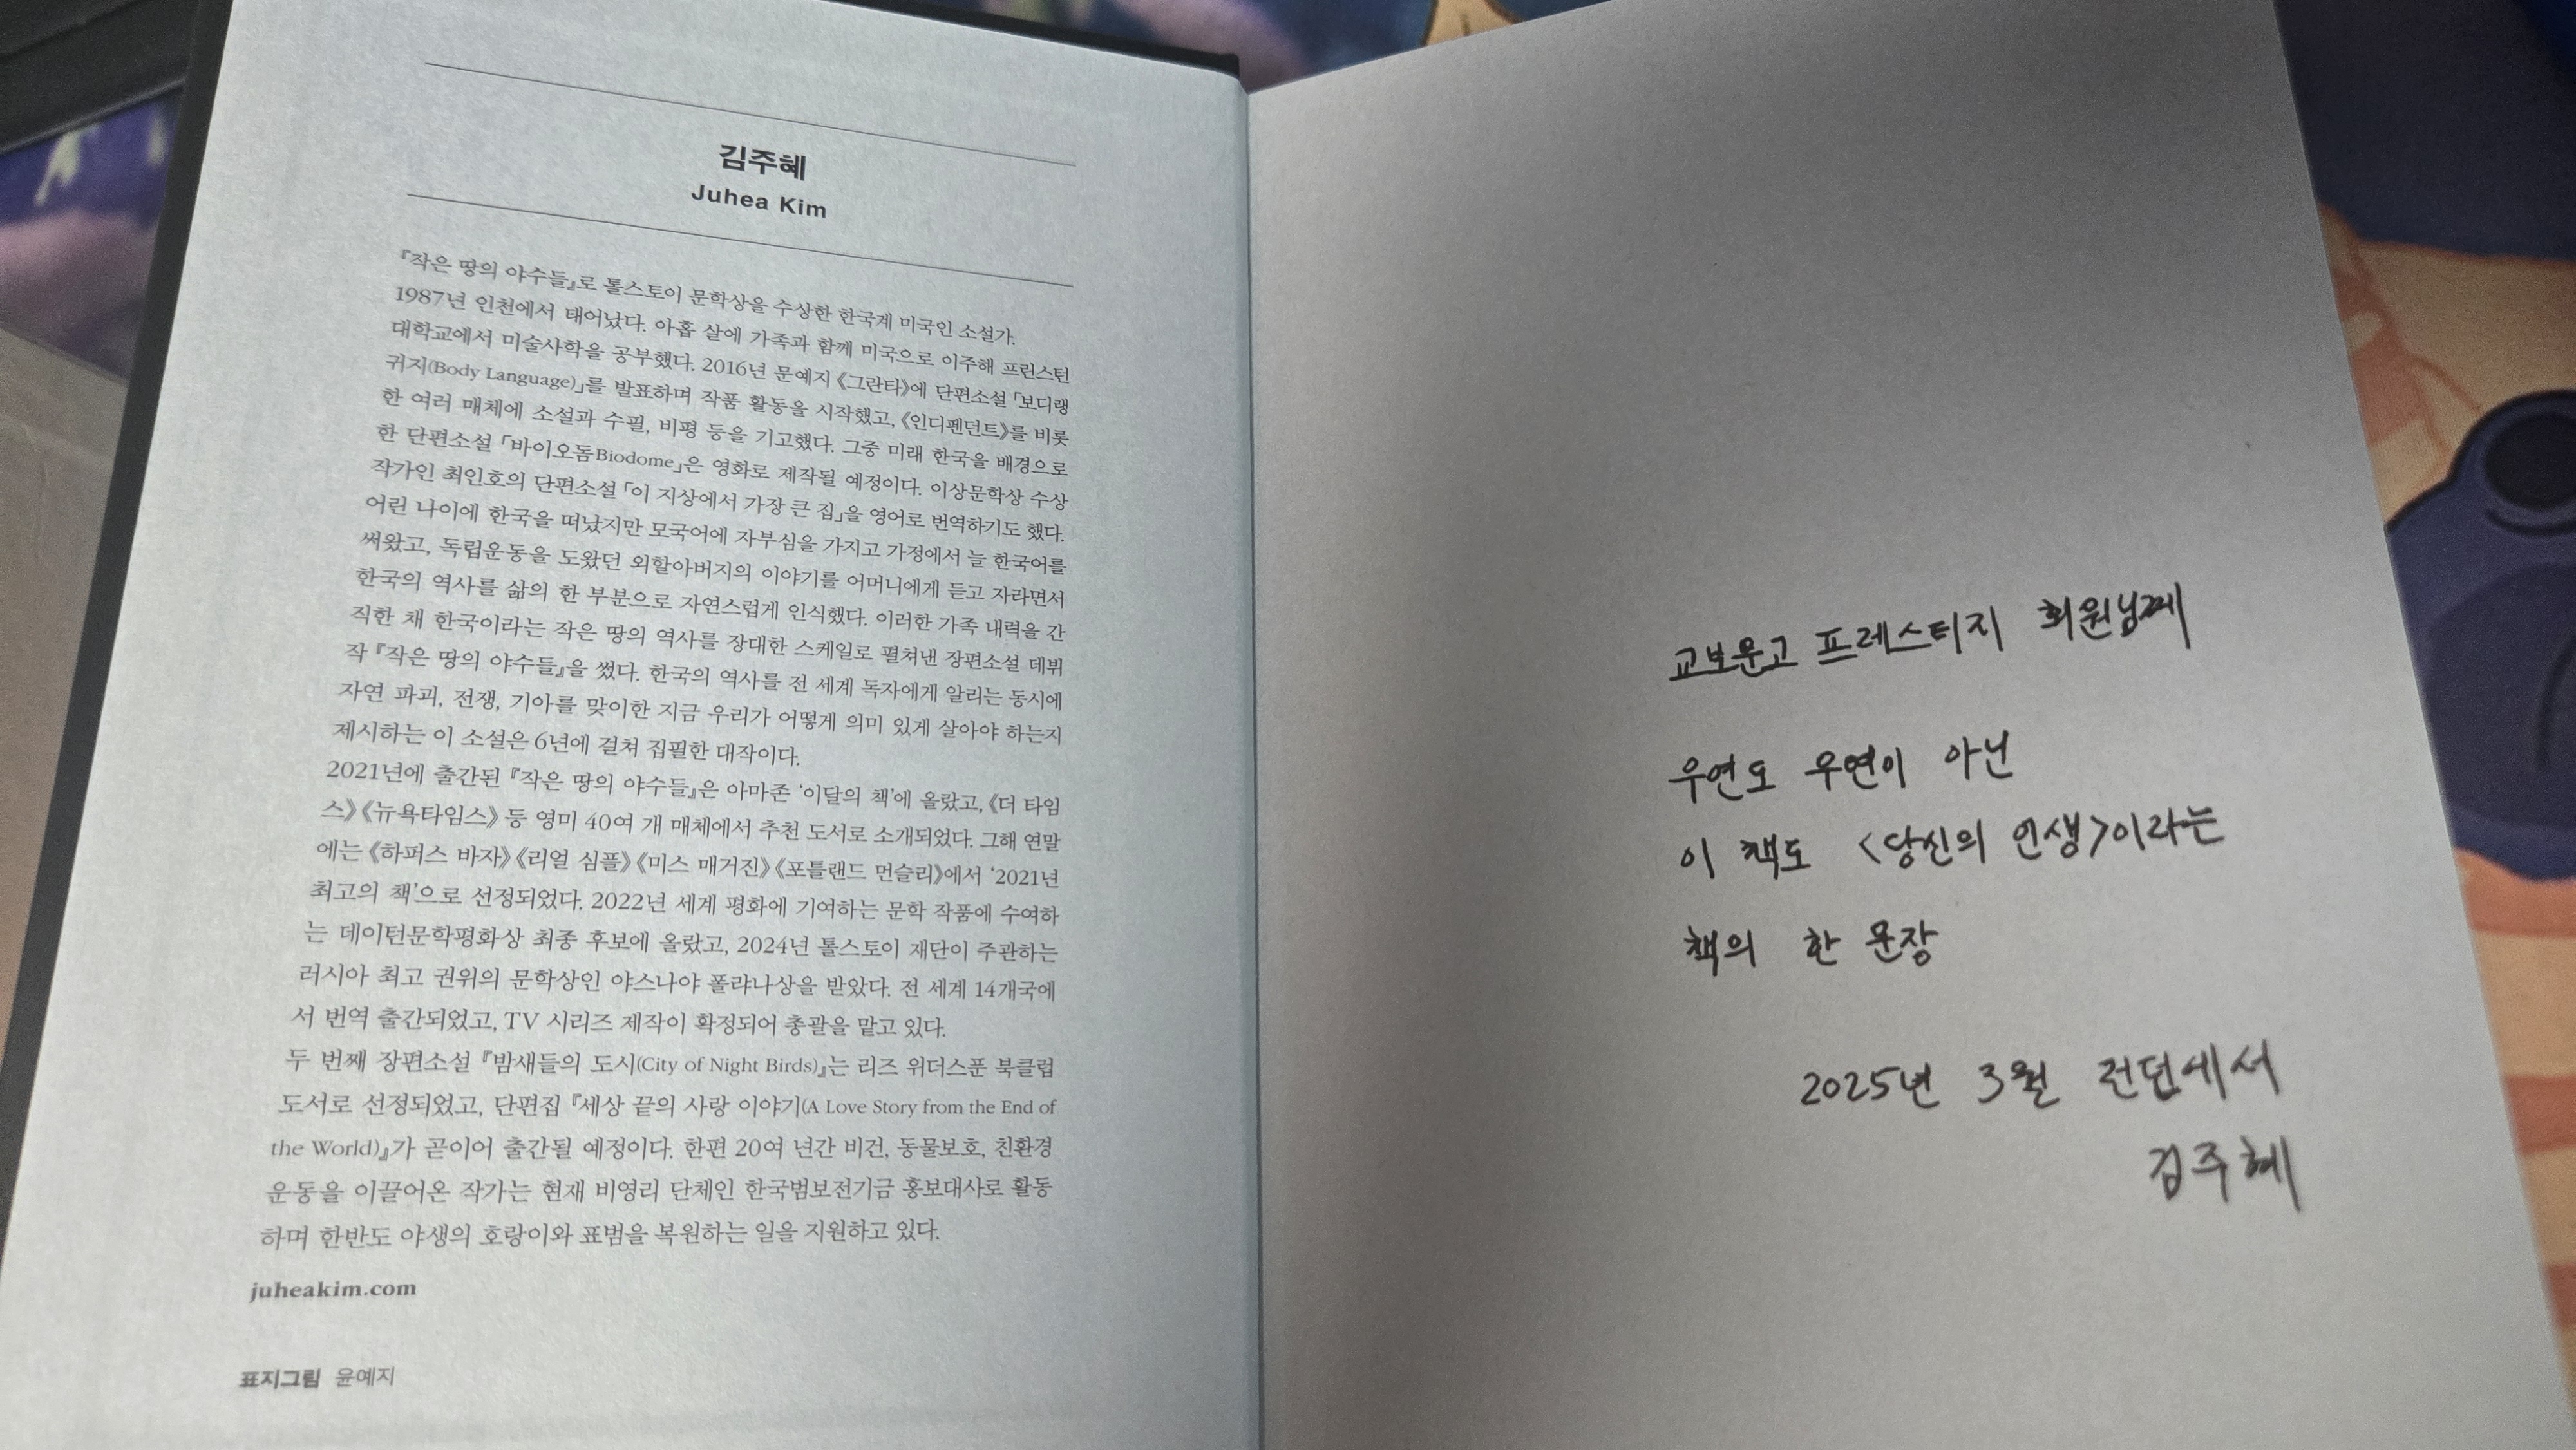 김주혜
Juhea Kim
『작은 땅의 야수들』로 톨스토이 문학상을 수상한 한국계 미국인 소설가.
1987년 인천에서 태어났다. 아홉 살에 가족과 함께 미국으로 이주해 프린스턴
대학교에서 미술사학을 공부했다. 2016년 문예지 《그란타》에 단편소설 「보디랭
귀지(Body Language)」를 발표하며 작품 활동을 시작했고, 《인디펜던트》를 비롯
한 여러 매체에 소설과 수필, 비평 등을 기고했다. 그중 미래 한국을 배경으로
한 단편소설 「바이오돔Biodome」은 영화로 제작될 예정이다. 이상문학상 수상
작가인 최인호의 단편소설 「이 지상에서 가장 큰 집」을 영어로 번역하기도 했다.
어린 나이에 한국을 떠났지만 모국어에 자부심을 가지고 가정에서 늘 한국어를
써왔고, 독립운동을 도왔던 외할아버지의 이야기를 어머니에게 듣고 자라면서
한국의 역사를 삶의 한 부분으로 자연스럽게 인식했다. 이러한 가족 내력을 간
직한 채 한국이라는 작은 땅의 역사를 장대한 스케일로 펼쳐낸 장편소설 데뷔
작 『작은 땅의 야수들』을 썼다. 한국의 역사를 전 세계 독자에게 알리는 동시에
자연 파괴, 전쟁, 기아를 맞이한 지금 우리가 어떻게 의미 있게 살아야 하는지
제시하는 이 소설은 6년에 걸쳐 집필한 대작이다.
2021년에 출간된 『작은 땅의 야수들』은 아마존 ‘이달의 책’에 올랐고, 《더 타임
스》 《뉴욕타임스》 등 영미 40여 개 매체에서 추천 도서로 소개되었다. 그해 연말
에는 《하퍼스 바자》 《리얼 심플》 《미스 매거진》 《포틀랜드 먼슬리》에서 ‘2021년
최고의 책’으로 선정되었다. 2022년 세계 평화에 기여하는 문학 작품에 수여하
는 데이턴문학평화상 최종 후보에 올랐고, 2024년 톨스토이 재단이 주관하는
러시아 최고 권위의 문학상인 야스나야 폴랴나상을 받았다. 전 세계 14개국에
서 번역 출간되었고, TV 시리즈 제작이 확정되어 총괄을 맡고 있다.
두 번째 장편소설 『밤새들의 도시(City of Night Birds)』는 리즈 위더스푼 북클럽
도서로 선정되었고, 단편집 『세상 끝의 사랑 이야기(A Love Story from the End of
the World)』가 곧이어 출간될 예정이다. 한편 20여 년간 비건, 동물보호, 친환경
운동을 이끌어온 작가는 현재 비영리 단체인 한국범보전기금 홍보대사로 활동
하며 한반도 야생의 호랑이와 표범을 복원하는 일을 지원하고 있다.
juheakim.com
표지그림 윤예지
교보문고 프레스티지 회원님께
우연도 우연이 아닌
이 책도 <당신의 인생>이라는
책의 한 문장
2025년 3월 런던에서
김주혜